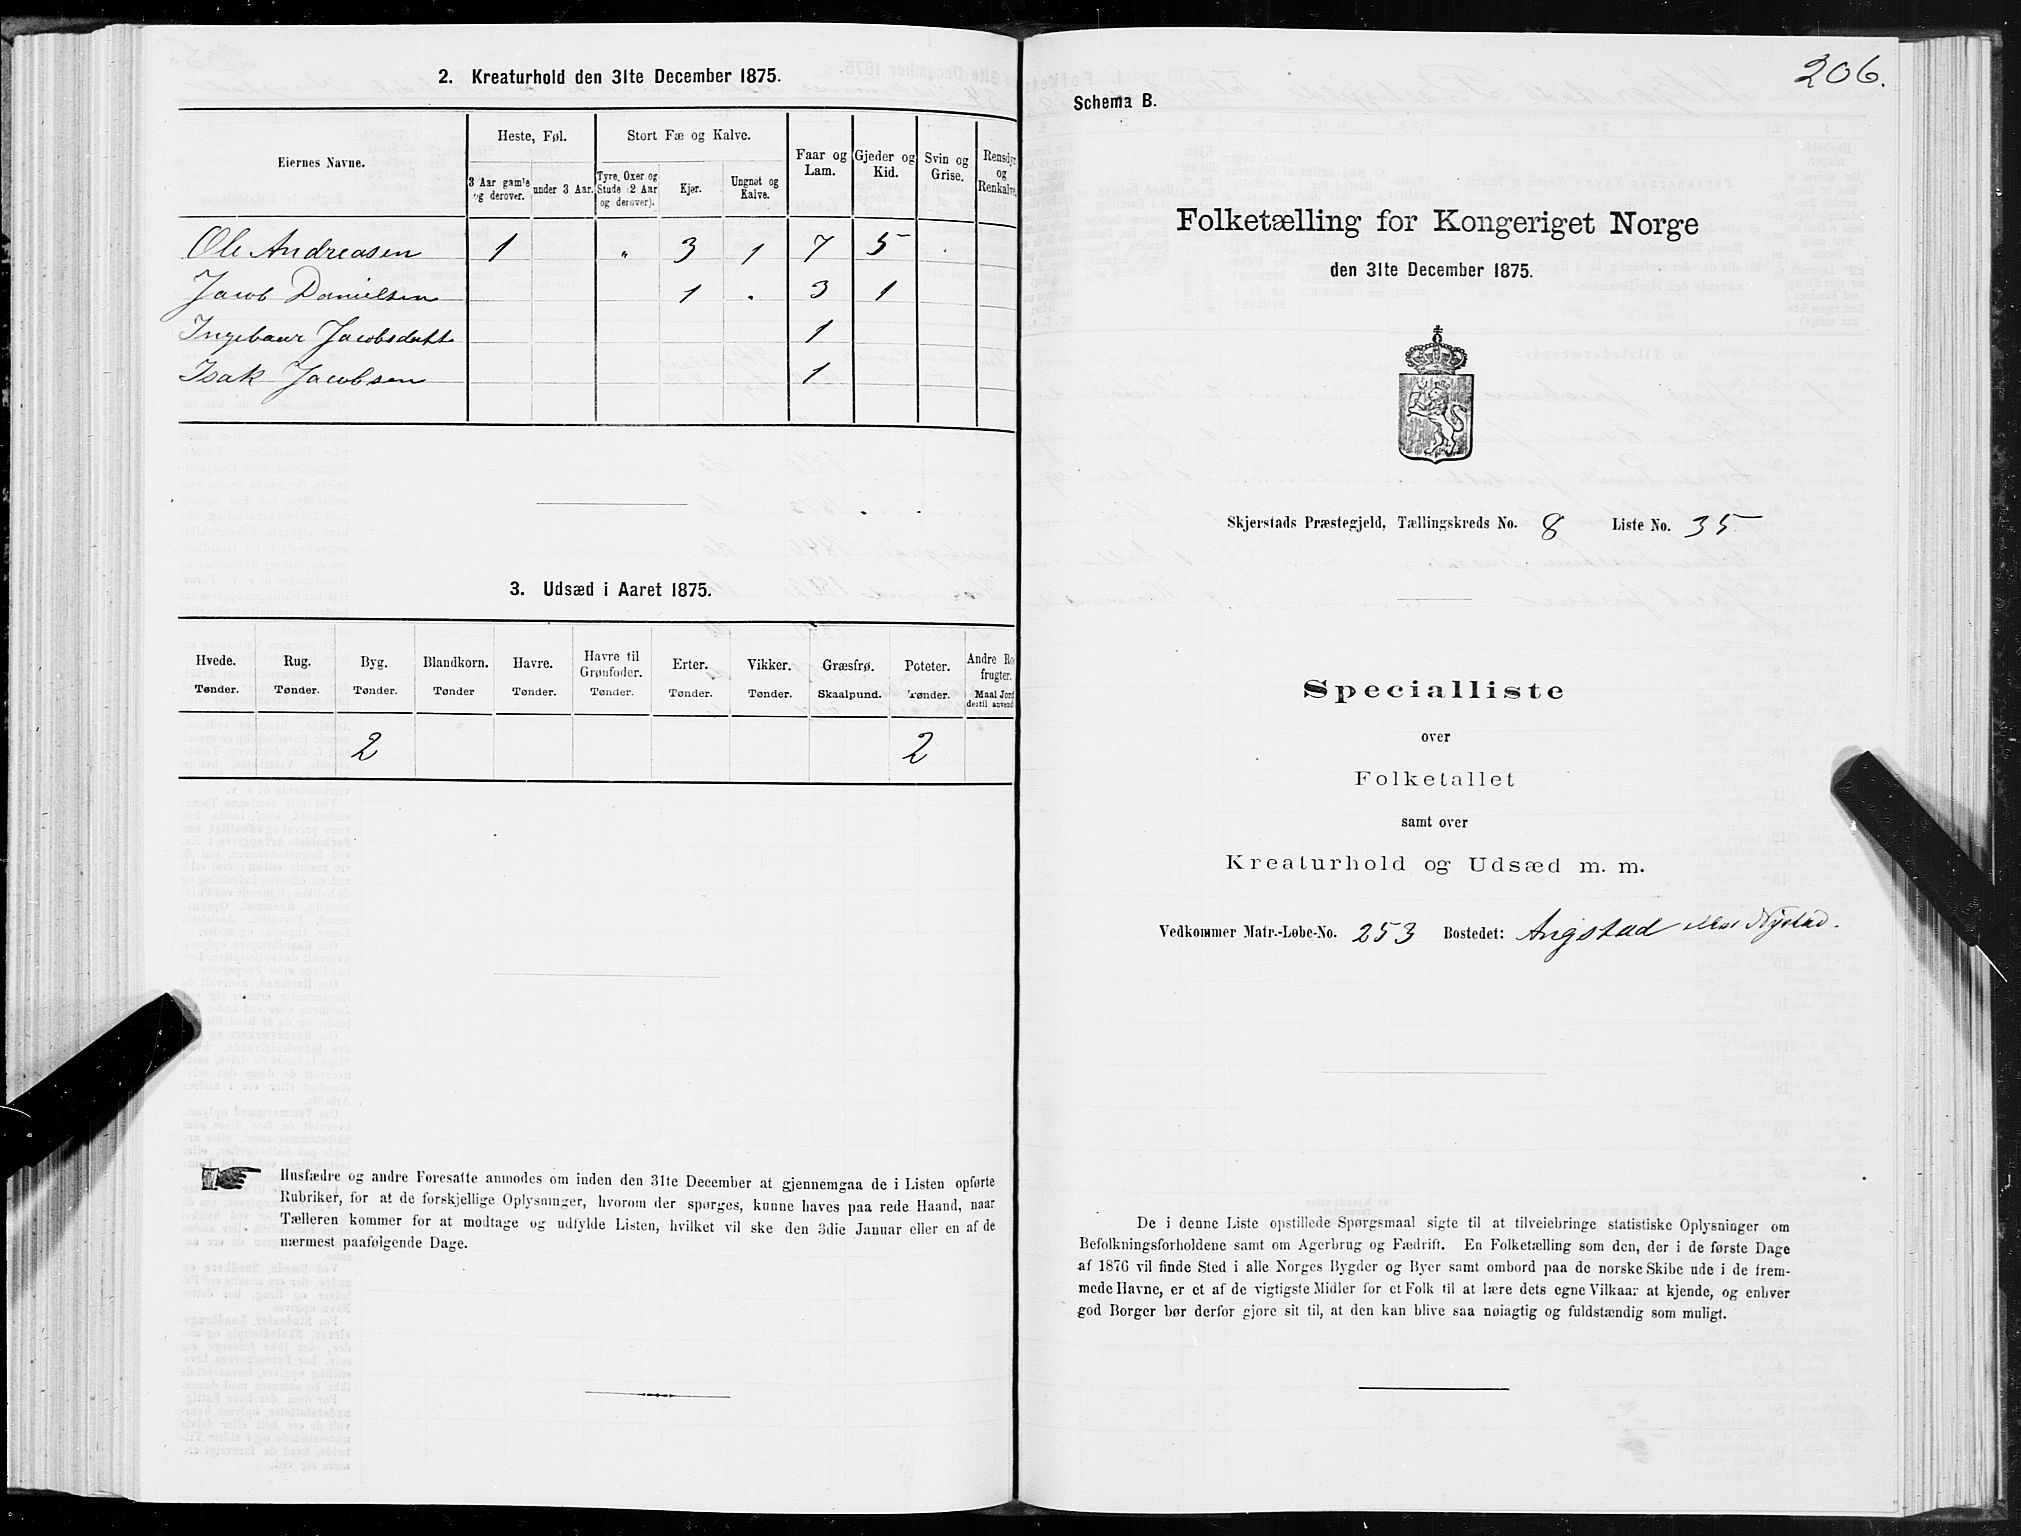 2. Kreaturhold den 31te December 1875.
Eiernes Navne.
Heste, Føl.
Stort Fæ og Kalve.
Faar og Lam.
Gjeder og Kid.
Svin og Grise.
Rensdyr og Renkalve.
3 Aar gamle og derover.
under 3 Aar.
Tyre, Oxer og Stude (2 Aar og derover).
Kjør.
Ungnøt og Kalve.
Ole Andreasen 1 " 3 1 7 5
Jacob Danielsen 1 . 3 1
Ingebaur Jacobsdatt 1
Isak Jacobsen 1
3. Udsæd i Aaret 1875.
Hvede. Rug. Byg. Blandkorn. Havre. Havre til Grønfoder. Erter. Vikker. Græsfrø. Poteter. Andre Ro frugter.
Tønder. Tønder. Tønder. Tønder Tønder. Tønder. Tønder. Tønder. Skaalpund. Tønder. Maal Jord dertil anvend
2 2
Husfædre og andre Foresatte anmodes om inden den 31te December at gjennemgaa de i Listen opførte
Rubriker, for at de forskjellige Oplysninger, hvorom der spørges, kunne haves paa rede Haand, naar
Tælleren kommer for at modtage og udfylde Listen, hvilket vil ske den 3die Januar eller en af de
nærmest paafølgende Dage.
206.
Schema B.
Folketælling for Kongeriget Norge
den 31te December 1875.
Skjerstads Præstegjeld, Tællingskreds No. 8 Liste No. 35
Specialliste
over
Folketallet
samt over
Kreaturhold og Udsæd m. m.
Vedkommer Matr.-Løbe-No. 253 Bostedet: Angstad eller Nystad.
De i denne Liste opstillede Spørgsmaal sigte til at tilveiebringe statistiske Oplysninger om
Befolkningsforholdene samt om Agerbrug og Fædrift. En Folketælling som den, der i de første Dage
af 1876 vil finde Sted i alle Norges Bygder og Byer samt ombord paa de norske Skibe ude i de frem-
mede Havne, er et af de vigtigste Midler for et Folk til at lære dets egne Vilkaar at kjende, og enhver
god Borger bør derfor gjøre sit til, at den kan blive saa nøiagtig og fuldstændig som muligt.